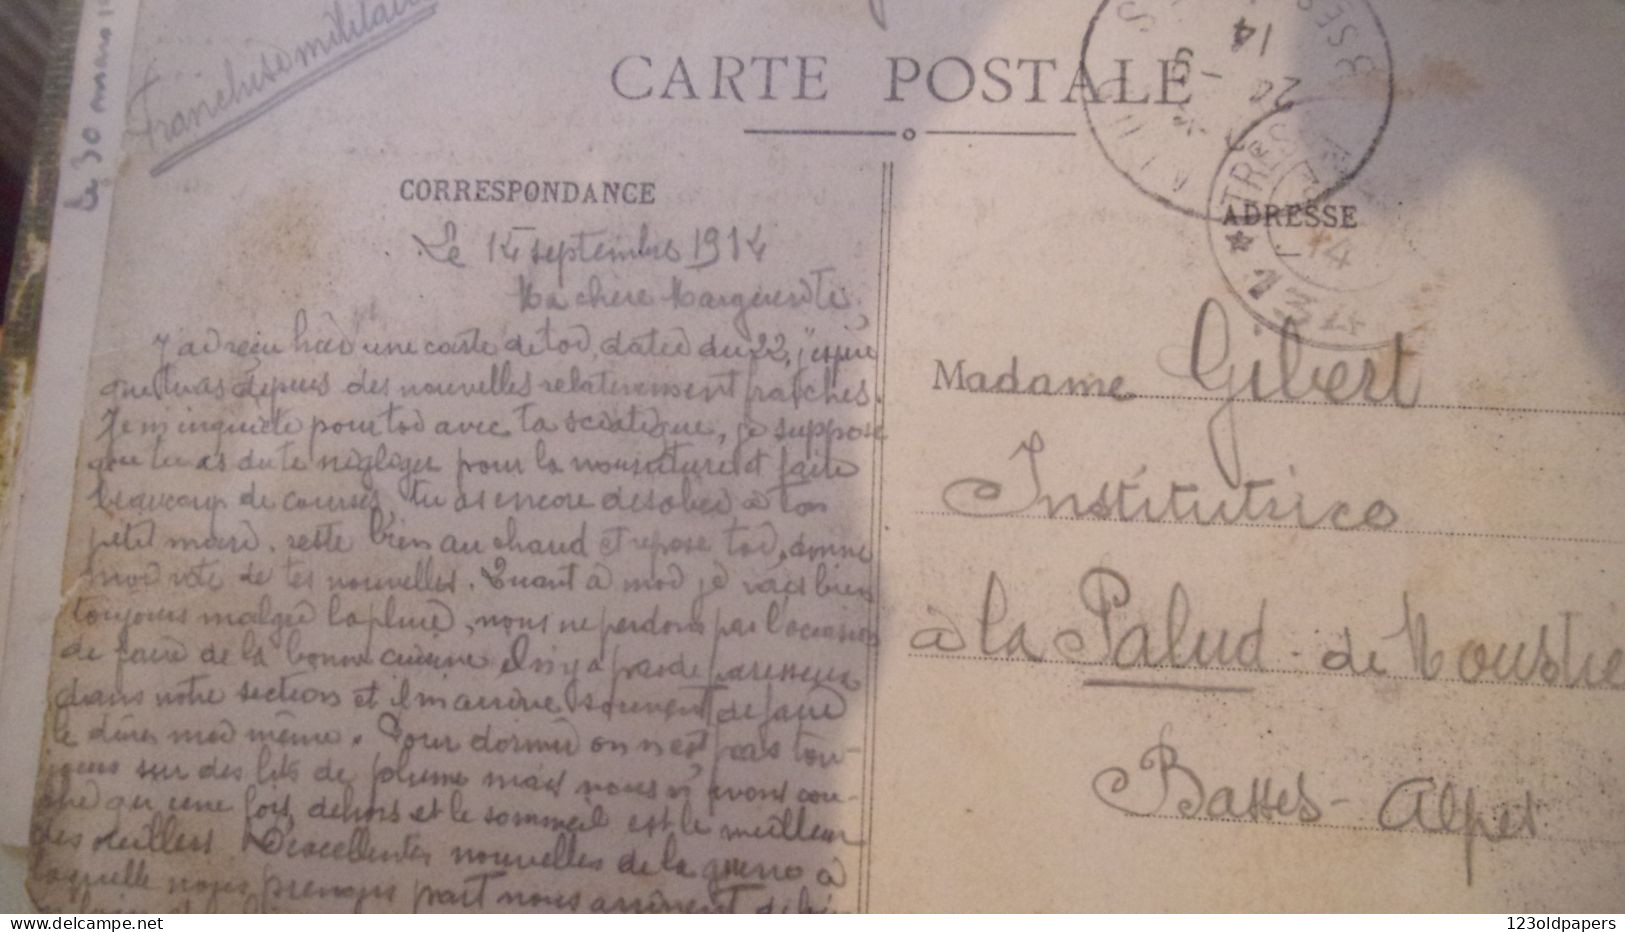 Le 30 mars
Franchise militaire
CARTE POSTALE
CORRESPONDANCE
Le 14 septembre 1914
Ma chère Marguerite,
J'ai reçu hier une carte de toi, datée du 22, j'espère
que tu as depuis des nouvelles relativement fraîches.
Je m'inquiète pour toi avec ta sciatique, je suppose
que tu as dû te négliger pour la nourriture et faire
beaucoup de courses, tu as encore désobéi à ton
petit mari. reste bien au chaud et repose toi, donne
moi vite de tes nouvelles. Quant à moi je vais bien
toujours malgré la pluie, nous ne perdons pas l'occasion
de faire de la bonne cuisine, il n'y a pas de paresseux
dans notre section et il m'arrive souvent de faire
le dîner moi même. Pour dormir on n'est pas tou-
jours sur des lits de plume mais nous n'avons cou-
ché qu'une fois dehors et le sommeil est le meilleur
des oreillers. D'excellentes nouvelles de la guerre à
laquelle nous prenons part nous arrivent
ADRESSE
14
TRES
14
Madame Gibert
Institutrice
à la Palud-de Moustie
Basses-Alpes
123oldpapers